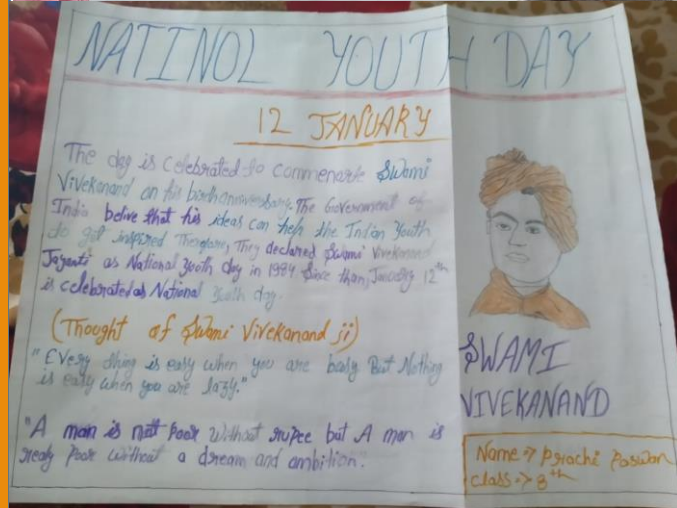 NATINOL YOUTH DAY
12 JANUARY
The day is Celebrated to commenarte Swami
Vivekanand on his birth anniversary. The Government of
India belive that his ideas can heh the Indian Youth
do get inspired Therefore, They declared Swami Vivekanand
Jayanti as National youth day in 1984 Since than, January 12th
is celebrated as National Youth day.
(Thought of Swami Vivekanand ji)
"Every thing is easy when you are busy But Nothing
is easy when you are lazy."
"A man is nott Poor without rupee but A man is
realy Poor without a dream and ambition.
SWAMI
VIVEKANAND
Name → Prachi Paswan
class → 8th